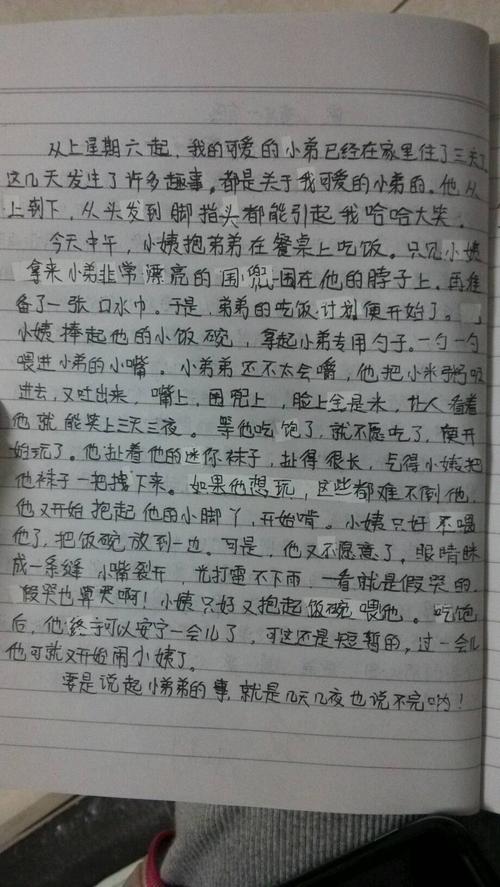 从上星期六起，我的可爱的小弟已经在家里住了三天了
这几天发生了许多趣事。都是关于我可爱的小弟的。他从
上到下，从头发到脚指头都能引起我哈哈大笑。
今天中午，小姨抱弟弟在餐桌上吃饭。只见小姨
拿来小弟非常漂亮的围兜围在他的脖子上。再准
备了一张口水巾。于是，弟弟的吃饭计划便开始了。
小姨捧起他的小饭碗，拿起小弟专用勺子。一勺一勺
喂进小弟的小嘴。小弟弟还不太会嚼，他把小米粥吸
进去，又吐出来，嘴上，围兜上，脸上全是米，让人看着
他就能笑上三天三夜。等他吃饱了，就不愿吃了，便开
始玩了。他扯着他的迷你袜子，扯得很长，气得小姨把
他袜子一把拽下来。如果他想玩，这些都难不倒他，
他又开始抱起他的小脚丫，开始啃。小姨只好不喂
他了，把饭碗放到一边。可是，他又不愿意了。眼睛眯
成一条缝，小嘴裂开，光打雷不下雨，一看就是假哭的，
假哭也算哭啊！小姨只好又抱起饭碗喂他。吃饱
后，他终于可以安宁一会儿了，可这还是短暂的，过一会儿
他可就又开始闹小姨了。
要是说起小弟弟的事，就是几天几夜也说不完哟！